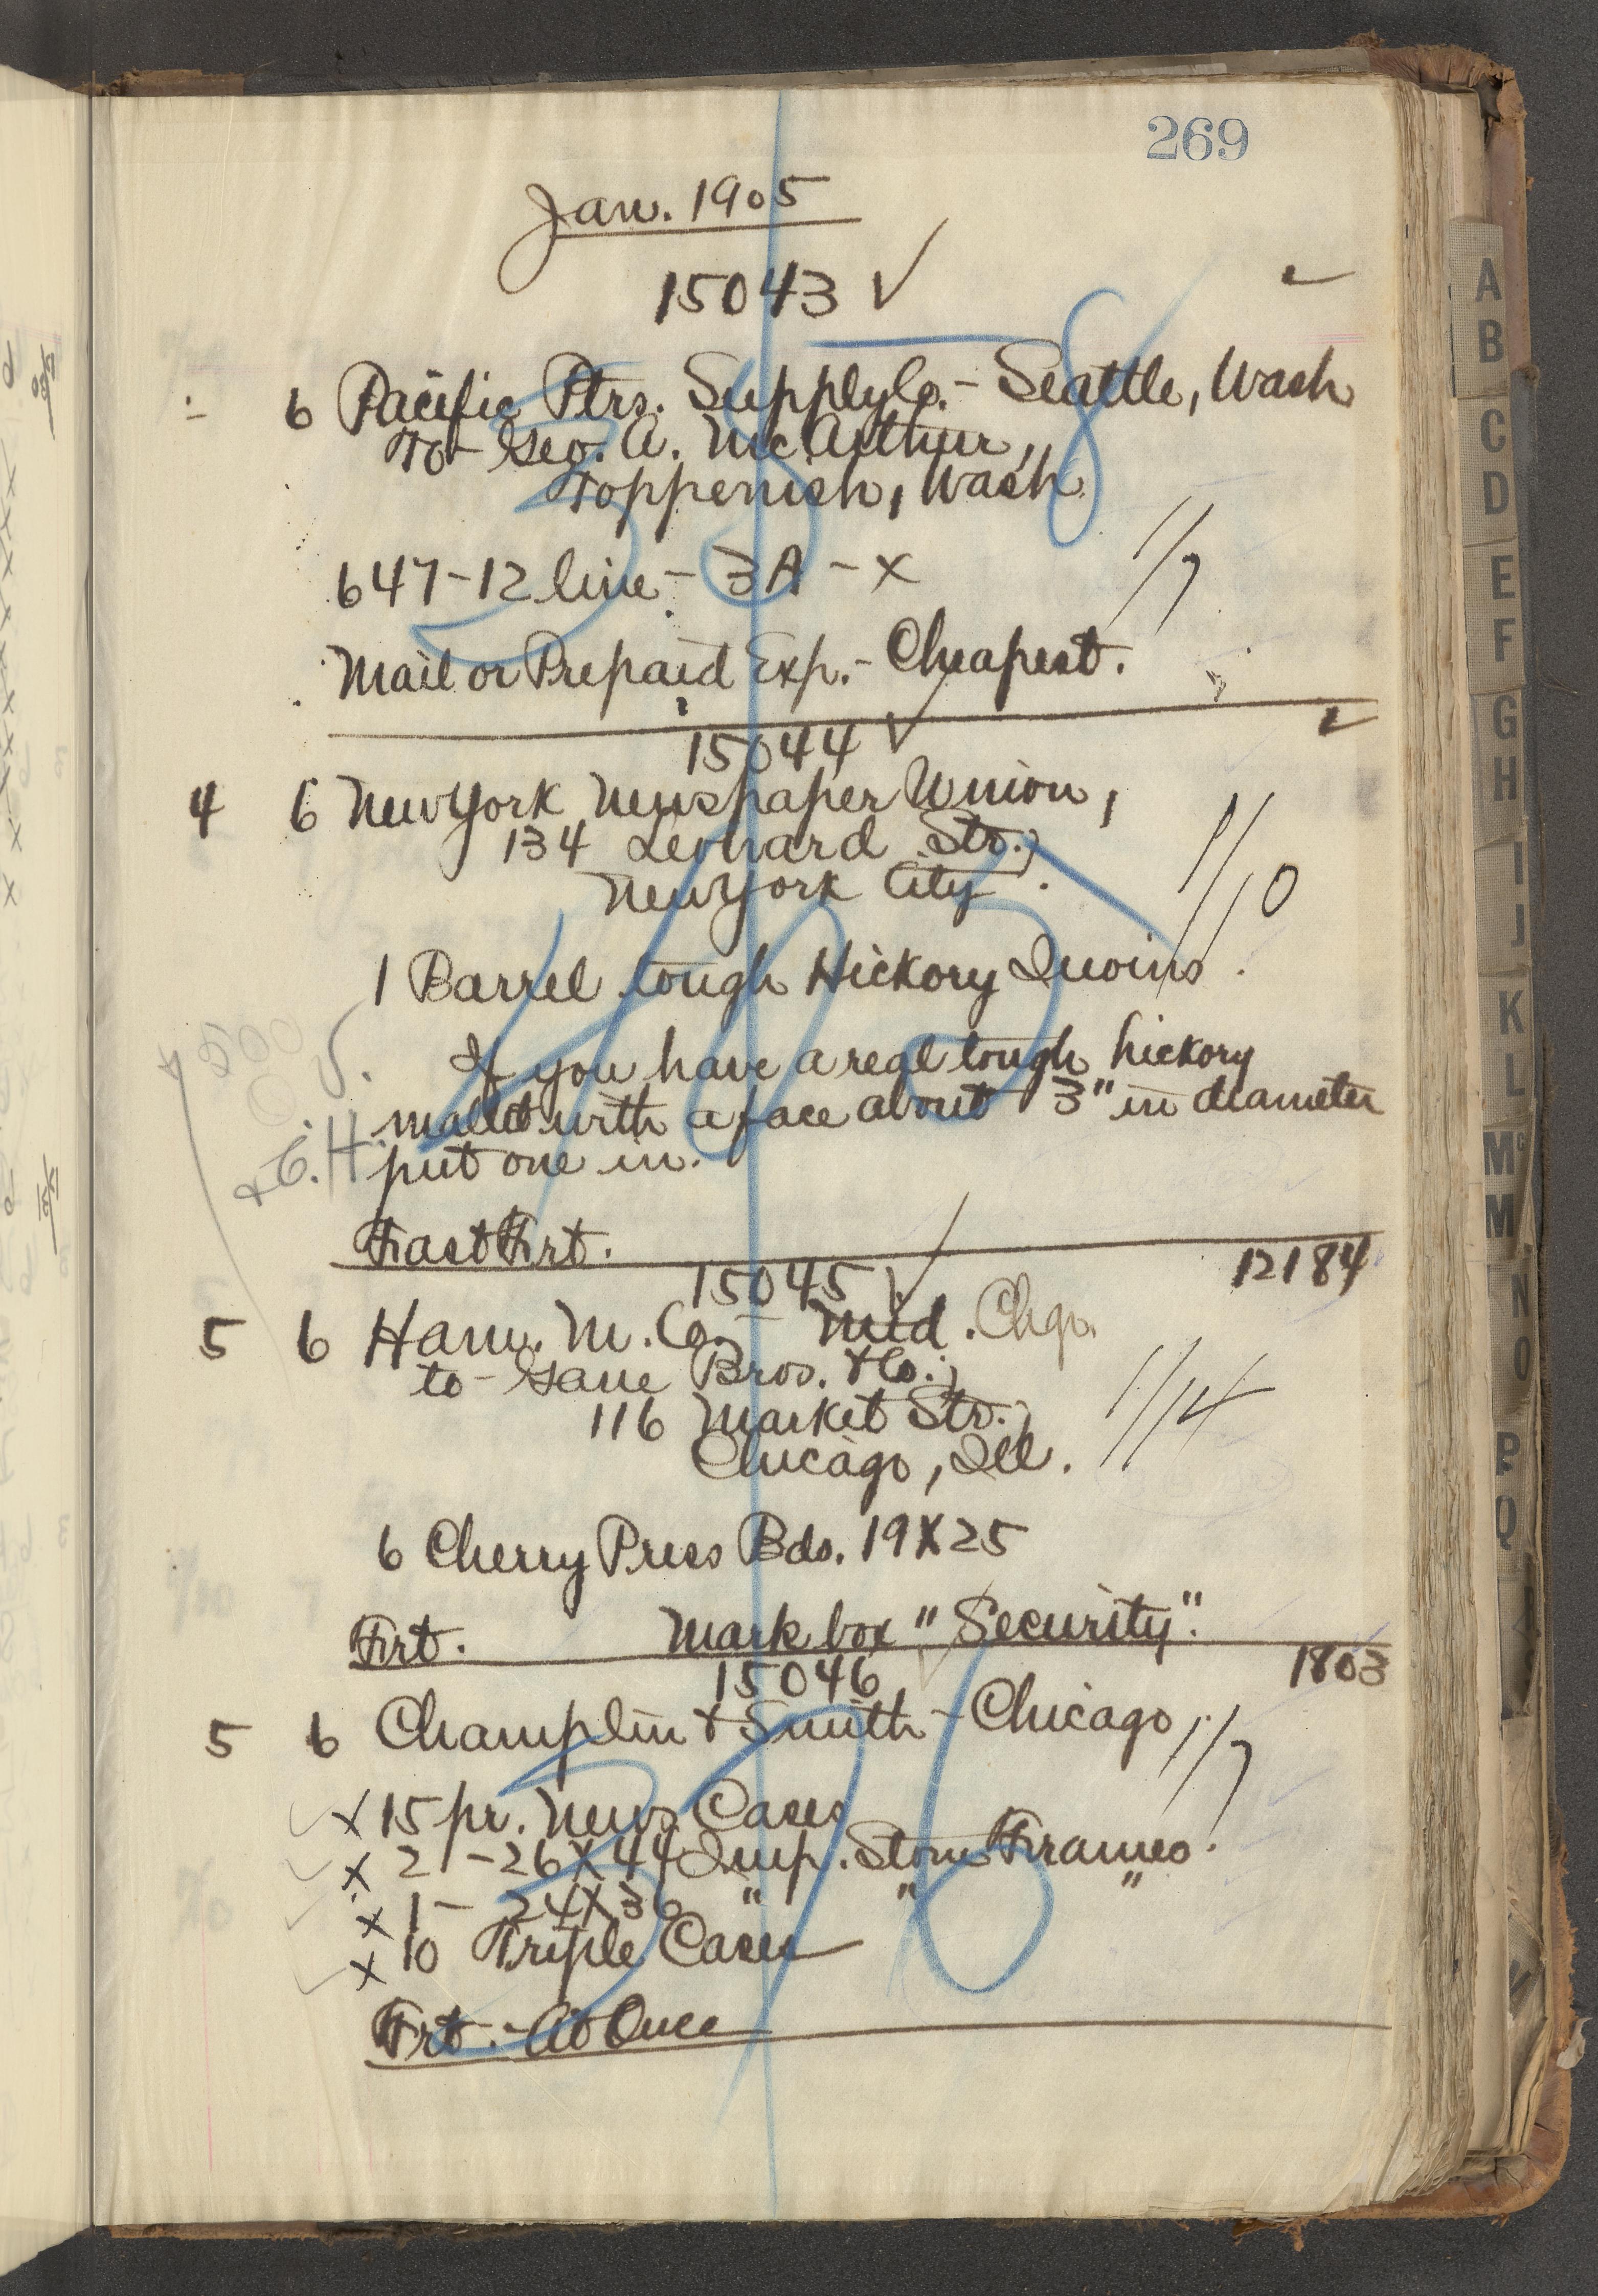 269
Jan. 1905
15043 ✓
6 Pacific Ptrs. Supply Co. - Seattle, Wash
To - Geo. A. McArthur,
Toppenish, Wash
647 - 12 line - 3A - X
1/7
Mail or Prepaid Exp. - Cheapest.
15044 ✓
4 6 New York Newspaper Union,
134 Leonard Str.,
New York City.
1/10
1 Barrel tough Hickory Quoins.
If you have a real tough hickory
mallet with a face about 3" in diameter
put one in.
Fast Frt.
12184
15045 ✓
5 6 Ham. M. Co. - Mid. Chgo.
to - Gane Bros. & Co.,
116 Market Str.,
Chicago, Ill.
1/14
6 Cherry Press Bds. 19X25
Frt. Mark box "Security".
1803
15046 ✓
5 6 Champlin & Smith - Chicago
1/7
X 15 pr. News Cases
X 2 - 26X44 Imp. Stone Frames.
X 1 - 24X36 " " "
X 10 Triple Cases
Frt. - At Once
A
B
C
D
E
F
G
H
I
J
K
L
Mc
M
N
O
P
Q